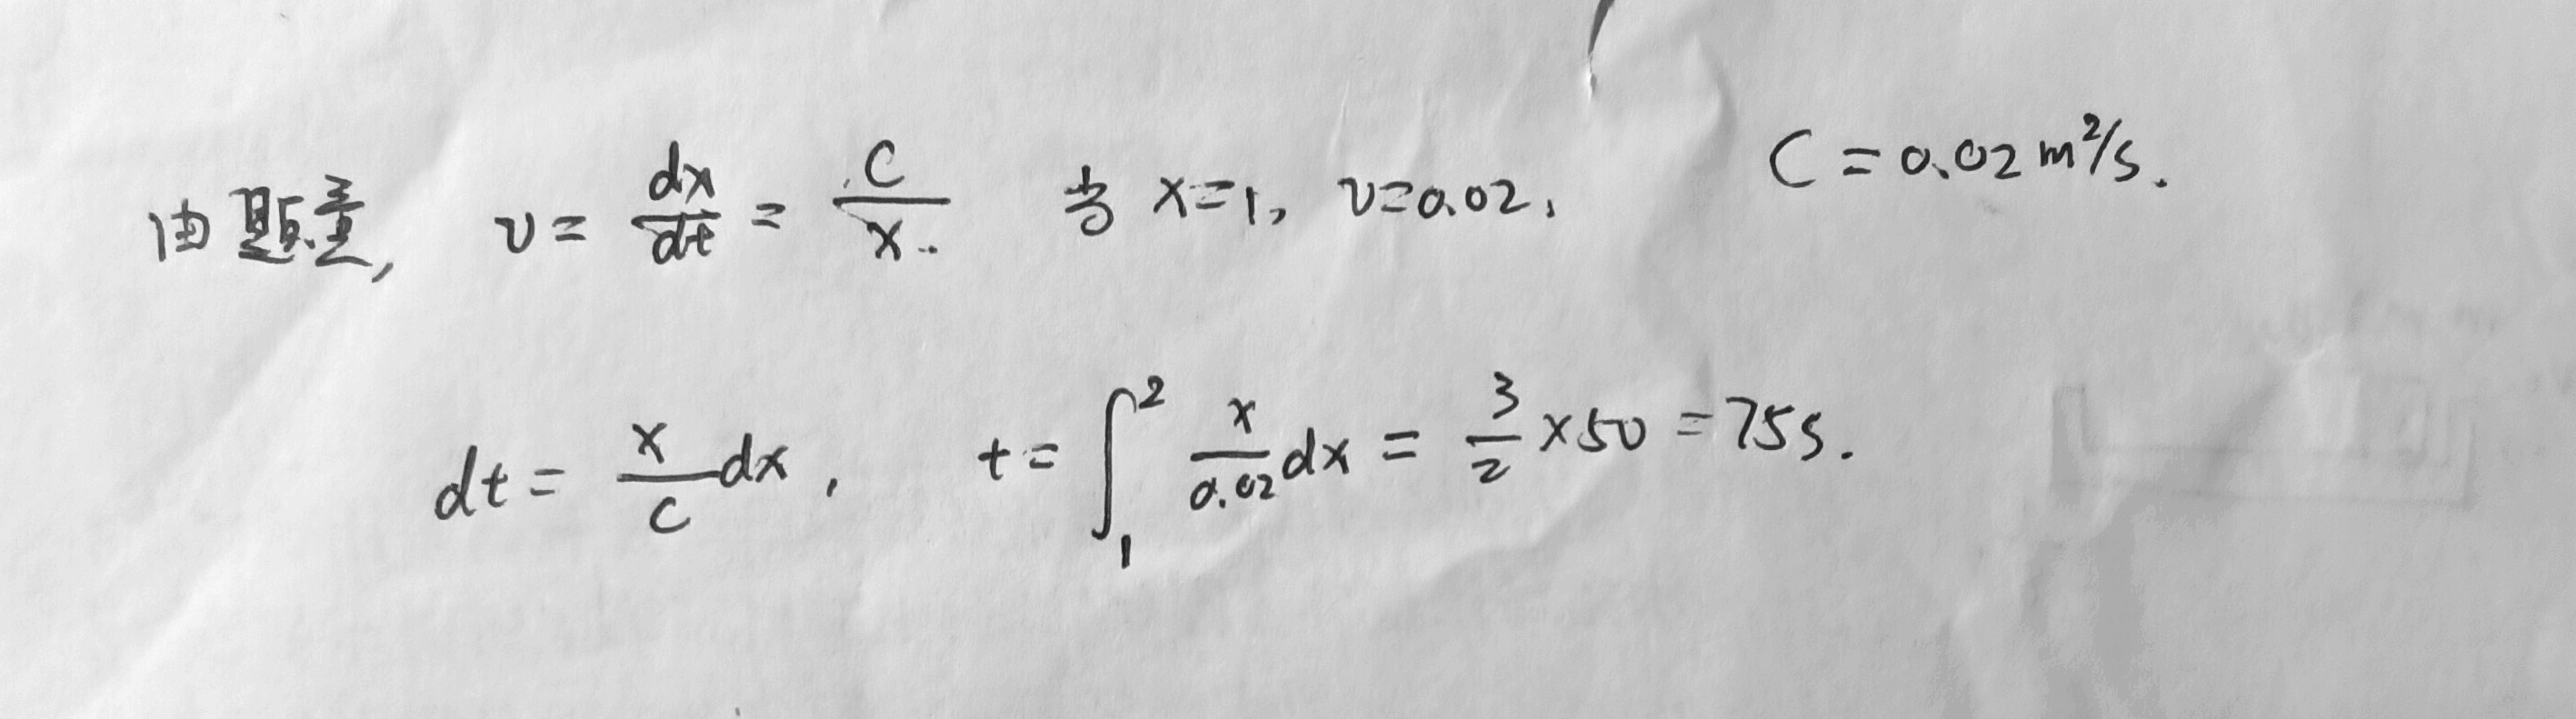 由题意, v = dx/dt = C/x. 当 x=1, v=0.02, C = 0.02 m²/s.
dt = x/c dx, t = ∫₁² x/0.02 dx = 3/2 × 50 = 75s.